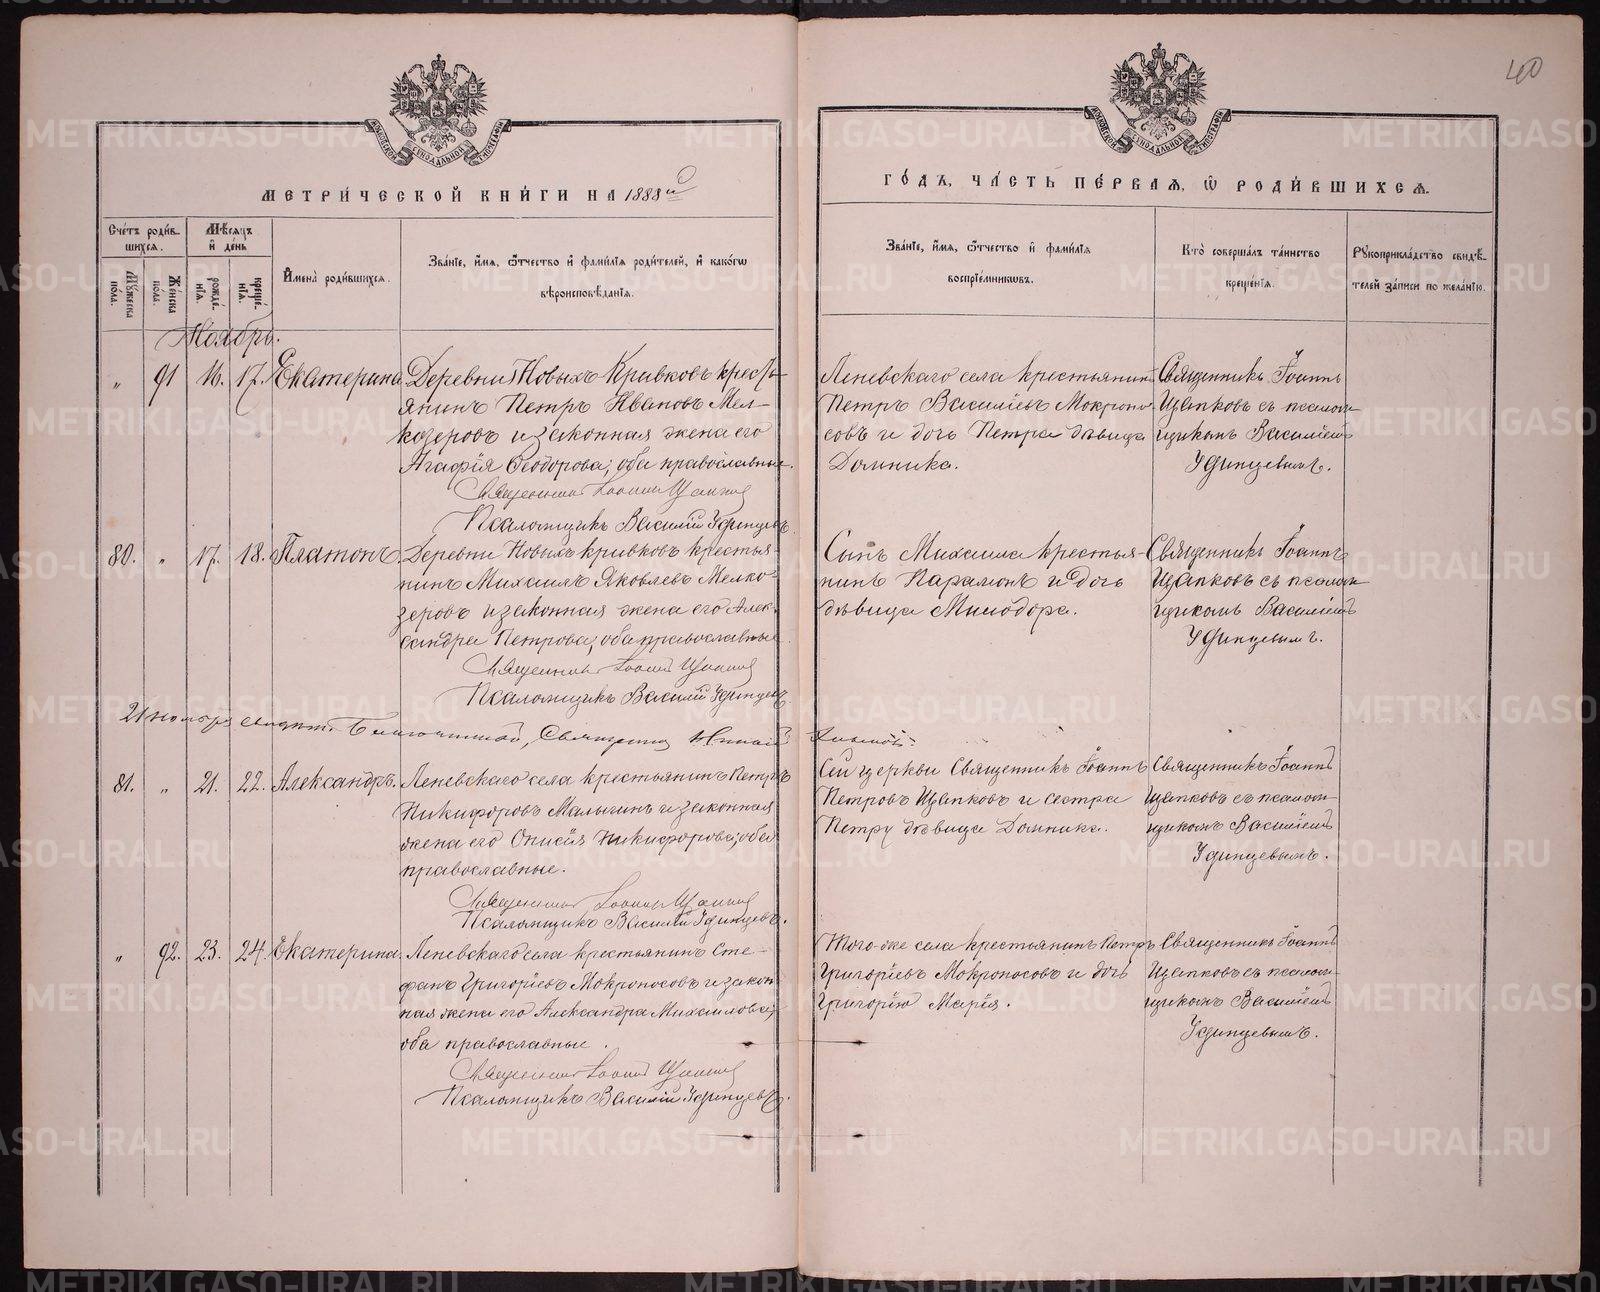 40
МЕТРИЧЕСКОЙ КНИГИ НА 1888й
ГОДЪ, ЧАСТЬ ПЕРВАЯ, Ѡ РОДИВШИХСЯ.
Счетъ родившихся.
Мѣсяцъ и день
Мужеска пола.
Женска пола.
рожденія.
крещенія.
Имена родившихся.
Званіе, имя, отчество и фамилія родителей, и какого
вѣроисповѣданія.
Званіе, имя, отчество и фамилія
воспріемниковъ.
Кто совершалъ таинство
крещенія.
Рукоприкладство свидѣ-
телей записи по желанію.
Ноябрь.
„ 91 16. 17. Екатерина
Деревни Новыхъ Кривковъ кресть-
янинъ Петръ Ивановъ Мел-
козеровъ и законная жена его
Агафія Ѳеодорова; оба православные.
Священникъ Іоаннъ Цапковъ
Псаломщикъ Василій Удинцевъ
Леневскаго села крестьянинъ
Петръ Васильевъ Мокроно-
совъ и дочь Петра дѣвица
Домника.
Священникъ Іоаннъ
Цапковъ съ псалом-
щикомъ Василіемъ
Удинцевымъ.
80. „ 17. 18. Платонъ.
Деревни Новыхъ Кривковъ крестья-
нинъ Михаилъ Яковлевъ Мелко-
зеровъ и законная жена его Алек-
сандра Петрова; оба православные
Священникъ Іоаннъ Цапковъ
Псаломщикъ Василій Удинцевъ
Сынъ Михаила крестья-
нинъ Парамонъ и дочь
дѣвица Минодора.
Священникъ Іоаннъ
Цапковъ съ псалом-
щикомъ Василіемъ
Удинцевымъ.
21 ноября Благочинный, Священникъ
81. „ 21. 22. Александръ.
Леневскаго села крестьянинъ Петръ
Никифоровъ Малыгинъ и законная
жена его Онисія Никифорова; оба
православные.
Священникъ Іоаннъ Цапковъ
Псаломщикъ Василій Удинцевъ.
Сей церкви Священникъ Іоаннъ
Петровъ Цапковъ и сестра
Петру дѣвица Домника.
Священникъ Іоаннъ
Цапковъ съ псалом-
щикомъ Василіемъ
Удинцевымъ.
„ 92. 23. 24. Екатерина.
Леневскаго села крестьянинъ Сте-
фанъ Григорьевъ Мокроносовъ и закон-
ная жена его Александра Михаилова;
оба православные.
Священникъ Іоаннъ Цапковъ
Псаломщикъ Василій Удинцевъ.
Того-же села крестьянинъ Петръ
Григорьевъ Мокроносовъ и дочь
Григорію Марія.
Священникъ Іоаннъ
Цапковъ съ псалом-
щикомъ Василіемъ
Удинцевымъ.
METRIKI.GASO-URAL.RU